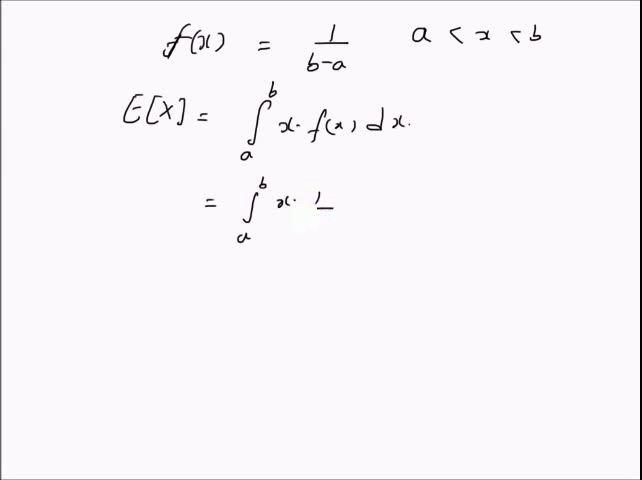 f(x) = 1/(b-a) a < x < b
E[X] = ∫_a^b x. f(x) dx.
= ∫_a^b x. 1/